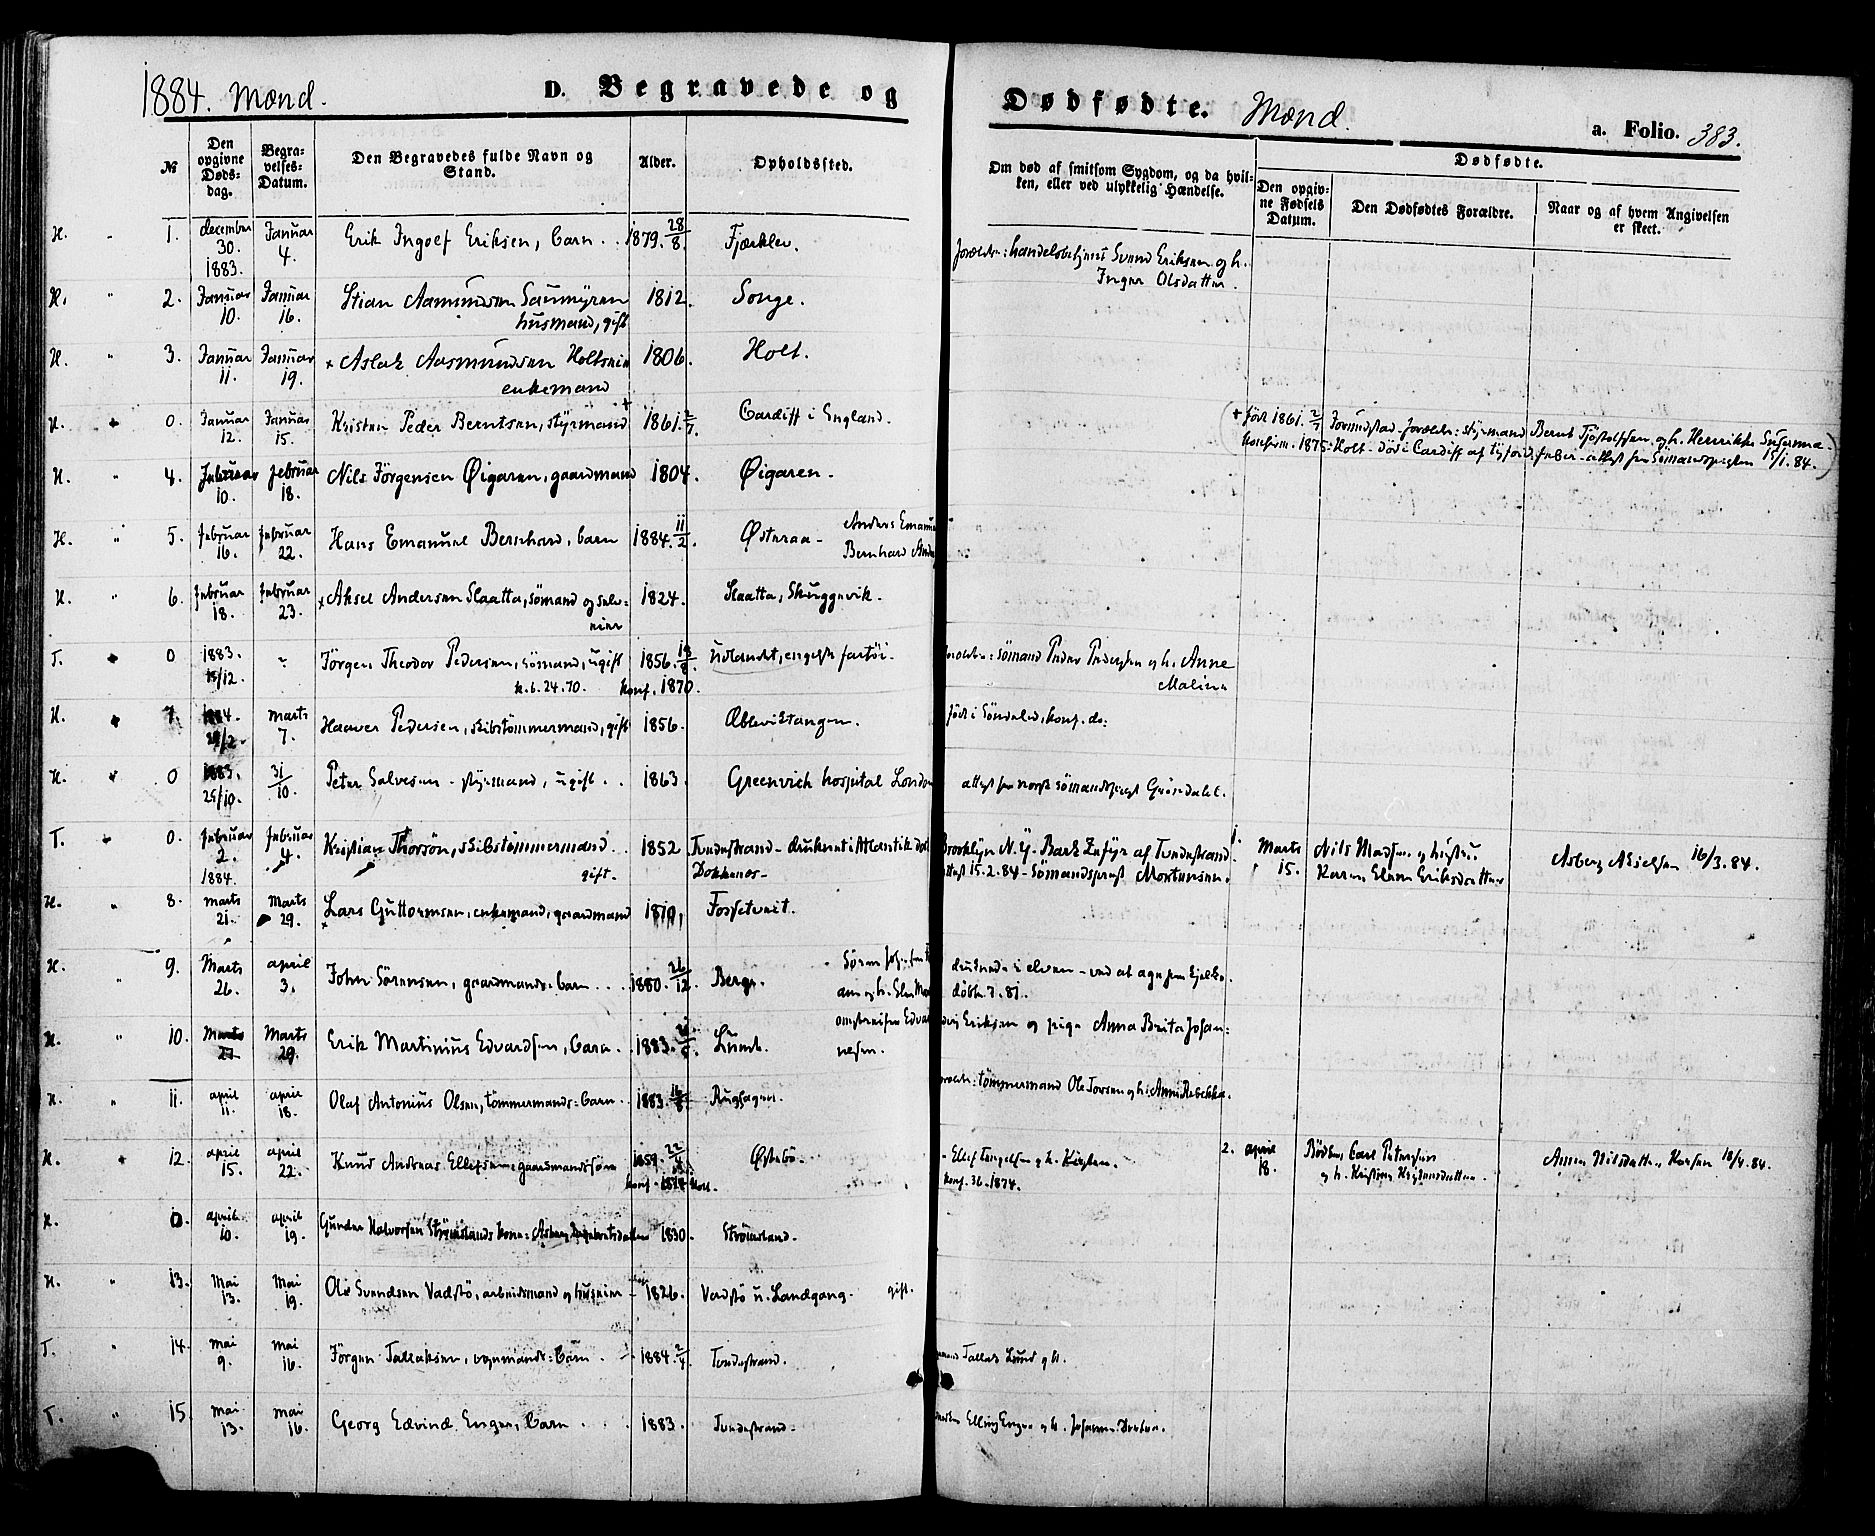 1884. Mænd.
D. Begravede og
Dødfødte. Mænd.
a. Folio. 383.
№
Den opgivne Døds-dag.
Begra-velses-Datum.
Den Begravedes fulde Navn og Stand.
Alder.
Opholdssted.
Om død af smitsom Sygdom, og da hvil-ken, eller ved ulykkelig Hændelse.
Dødfødte.
Den opgiv-ne Fødsels Datum.
Den Dødfødtes Forældre.
Naar og af hvem Angivelsen er skeet.
H. 1. december 30. 1883. Januar 4. Erik Ingolf Eriksen, barn 1879. 28/8. Fjærklev. forældre: handelsbetjent Svend Eriksen og h. Inger Olsdatter.
H. " 2. Januar 10. Januar 16. Stian Aamundsen Saumyren husmand, gift 1812. Songe.
H. " 3. Januar 11. Januar 19. × Aslak Aasmundsen Holtseie enkemand 1806. Holt.
H. 0. Januar 12. Januar 15. Kristen Peder Berntsen, styrmand + 1861. 2/7. Cardiff i England.
(+ født 1861. 2/7 forældre: styrmand Bernt og h. Henrikke
Konfirm. 1875 Holt - død i Cardiff af tyfoid feber - attest fra Sömandspresten 15/1.84.)
H. " 4. Februar 10. Februar 18. Nils Jörgensen Øigaren, gaardmand 1804. Øigaren.
H. " 5. Februar 16. Februar 22. Hans Emanuel Bernhard, barn 1884. 11/2. Østeraa - Anders Emanuel Bernhard
H. " 6. Februar 18. Februar 23. × Aksel Andersen Slaatta, sömand og selveier 1824. Slaatta, Skuggevik.
T. 0 1883. 15/12. " Jörgen Theodor Pedersen, sömand, ugift k. 6. 24. 70. 1856. 18/8. konf. 1870. udlandet, engelsk fartöi. forældre: sömand Peder Pedersen og h. Anne Malene
H. 7. 1884. 29/2. marts 7. Haaver Pedersen, skibstömmermand, gift 1856. Æbleviktangen. født i Söndeled, konf. do:
H. 0 1883. 25/10. 31/10. Peter Salvesen - styrmand, ugift 1863. Greenvich hospital London attest fra norsk sömandsprest Gröndahl.
T. 0. Februar 2. 1884. Februar 4. Kristian Thorsön, skibstömmermand gift. 1852 Tvedestrand - druknet i Atlantik Dokkenes - Brooklyn N.Y. Bark Zefyr af Tvedestrand. attest 15.2.84 - Sömandsprest Mortensen.
1. Marts 15. Nils Madsen og hustru Karen Elene Eriksdatter Asberg Nielsen 16/3.84.
H. " 8. marts 21. Marts 29. × Lars Guttormsen, enkemand, gaardmand 1810, Fossetveit.
H. " 9. Marts 26. april 3. John Sörensen, gaardmands-barn 1880. 26/12. Berge. druknede i elven -
döbte 7. 81.
H. " 10. Marts 21 Marts 29. Erik Martinius Edvardsen, barn 1883. Lunde. omstreifer Edvard Eriksen og pige Anna Brita Johannesen.
H. " 11. april 11. april 18. Olaf Antonius Olsen, tömmermands-barn 1883. forældre: tömmermand Ole Torsen og h: Anne Rebekka.
H. 12. april 15. april 22. Knud Andreas Ellefsen, gaardmandssön 1859. konf. 1874 Holt. Østebö. - Ellef Tengelsen og h. Kirsten. Konf. 36. 1874.
2. april 18. Bödker Carl Petersen og h. Kristine Anne Nilsdatter 18/4.84.
H. 0. april 10. april 19. Gunder Halvorsen Strömslands kone: Asberg 1830. Strömsland.
H. " 13. Mai 13. Mai 19. Ole Svendsen Vadstö, arbeidsmand og huseier 1826. Vadstö u. Landgang. gift.
T. " 14. mai 9. mai 16. Jörgen Tallaksen, barn 1884. 2/4. Tvedestrand. Tallak Lund og h.
T. " 15. mai 13. mai 16. Georg Edvind Enger, barn 1883. Tvedestrand. Elling Enger og h. Johanne